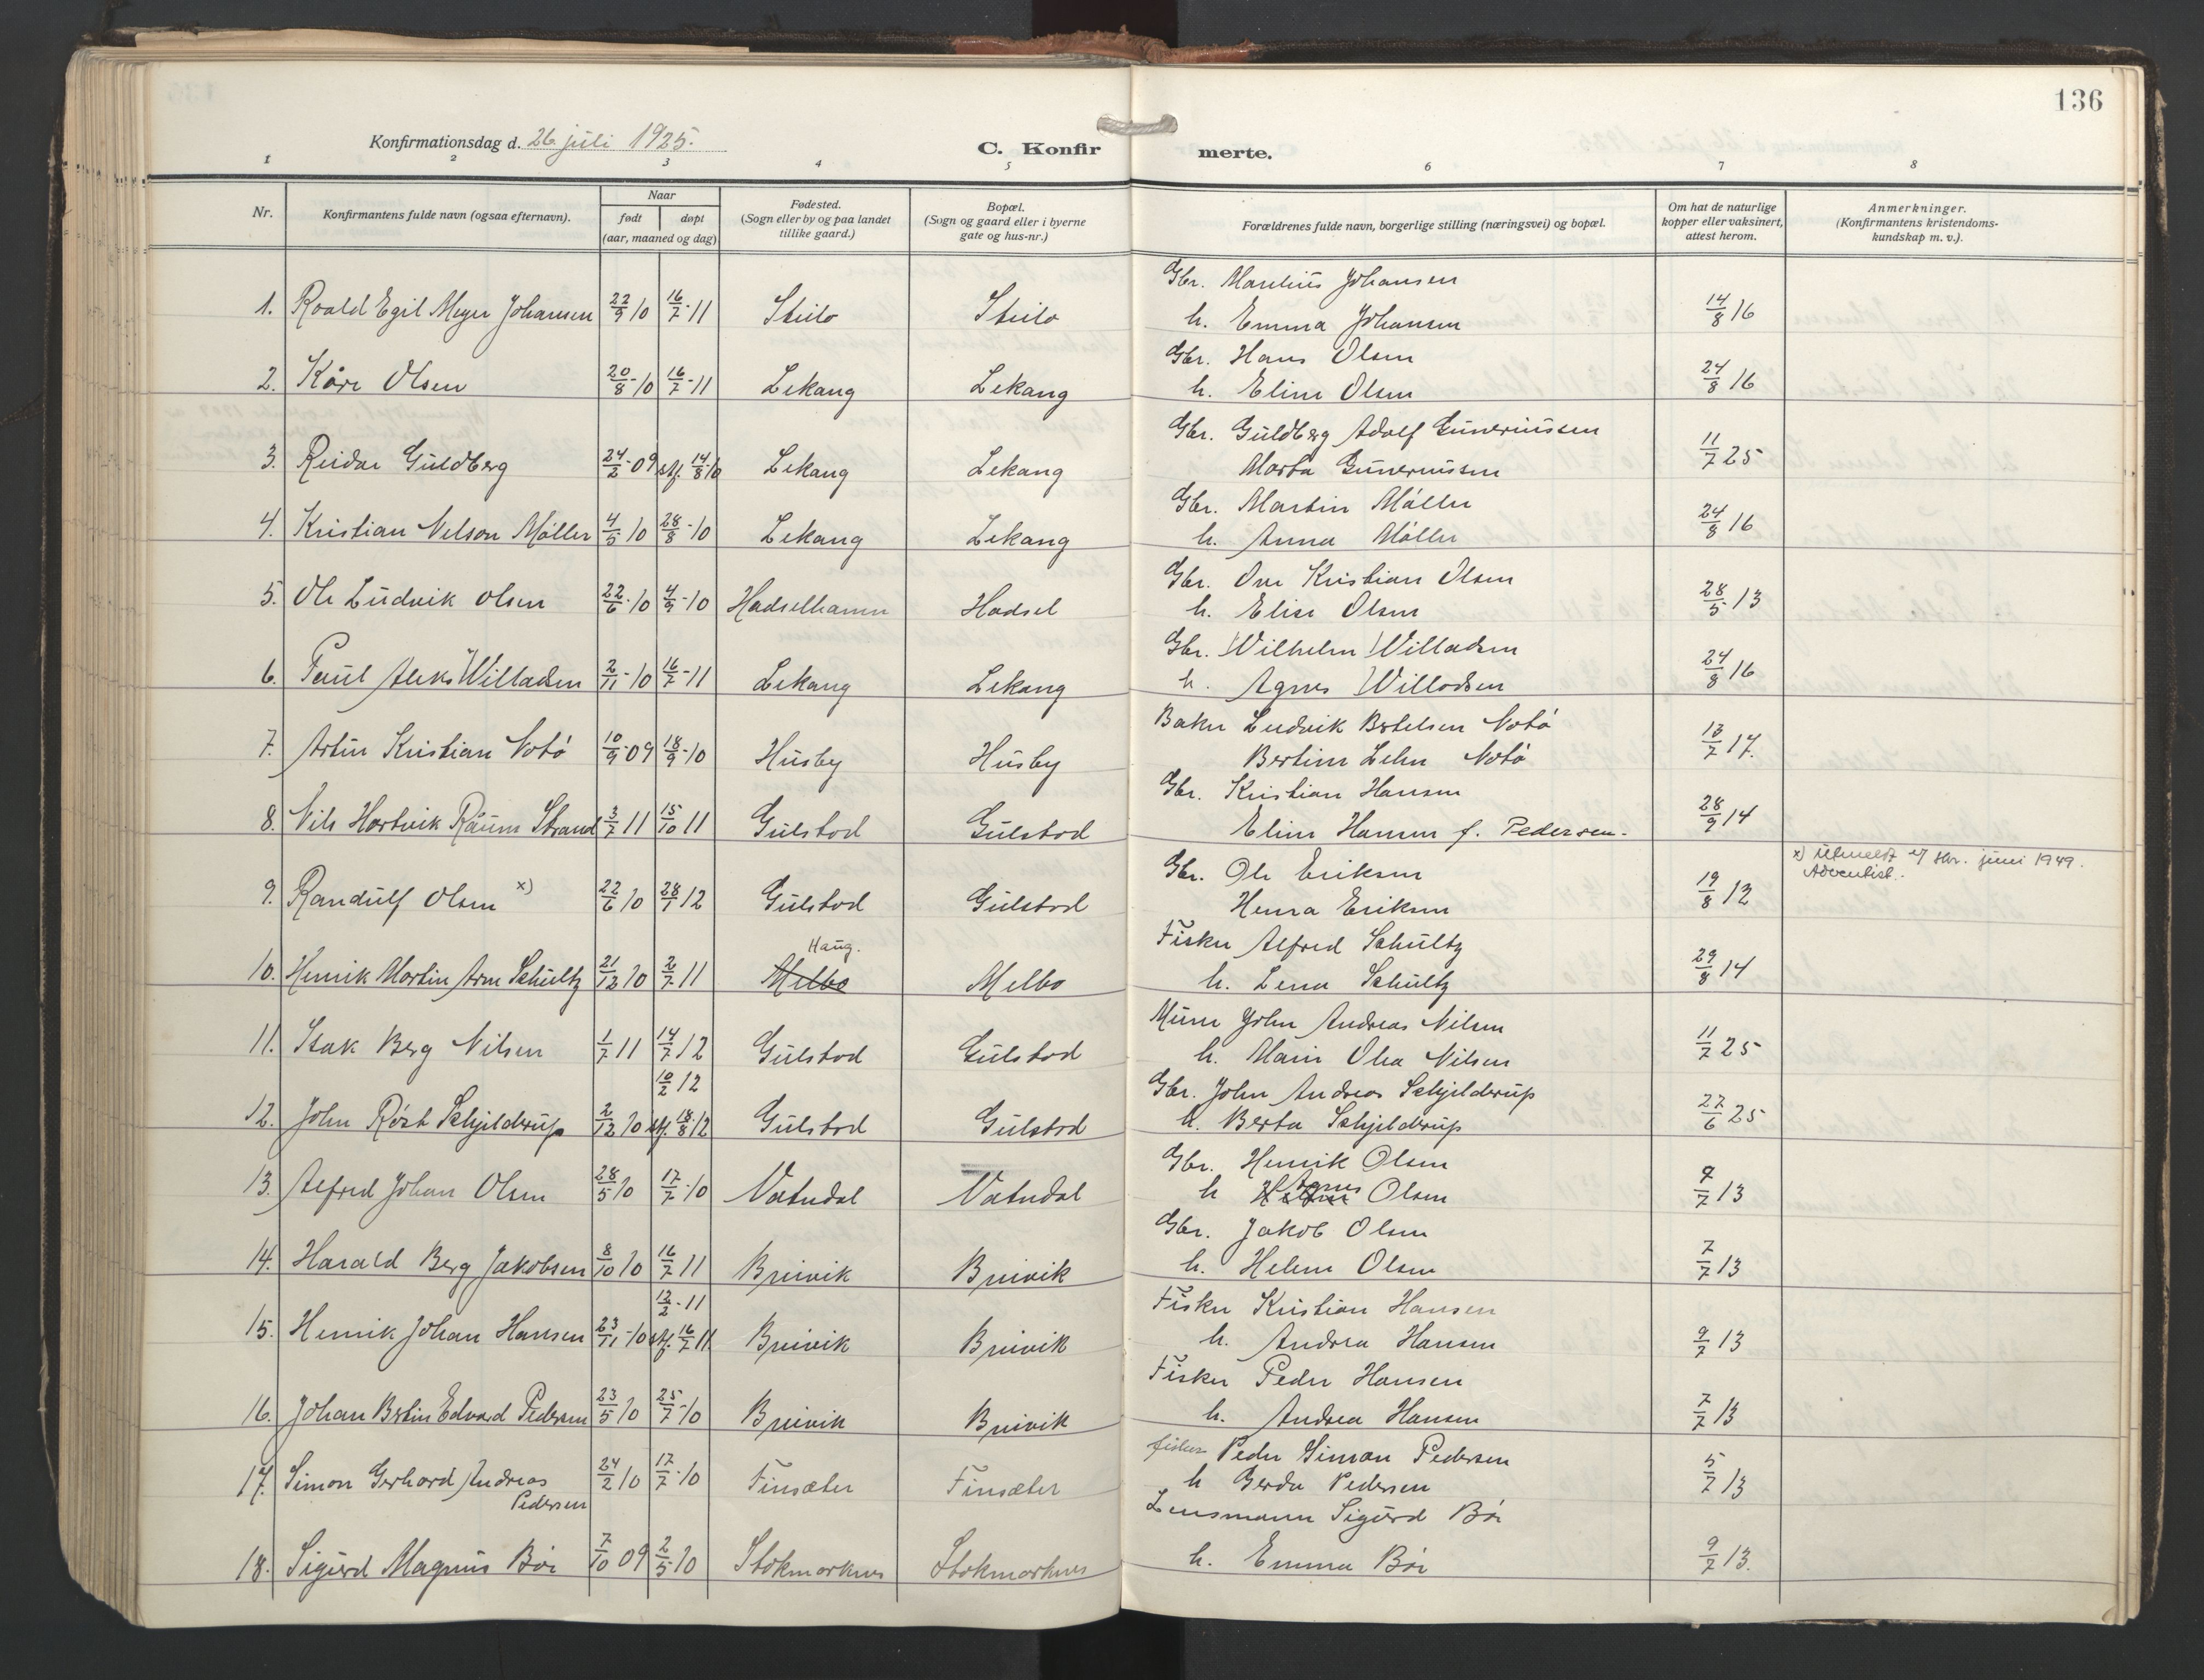 136
Konfirmationsdag d. 26 juli 1925.
C. Konfirmerte.
1 2 3 4 5 6 7 8
Nr.
Konfirmantens fulde navn (ogsaa efternavn).
Naar
født
døpt
(aar, maaned og dag)
Fødested.
(Sogn eller by og paa landet
tillike gaard.)
Bopæl.
(Sogn og gaard eller i byerne
gate og hus-nr.)
Forældrenes fulde navn, borgerlige stilling (næringsvei) og bopæl.
Om hat de naturlige
kopper eller vaksinert,
attest herom.
Anmerkninger.
(Konfirmantens kristendoms-
kundskap m. v.).
Gbr. Marelius Johansen
1. Roald Egil Meyer Johansen 22/9 10 16/7-11 Steilo Steilo h. Emma Johansen 14/8 16
Gbr. Hans Olsen
2. Kåre Olsen 20/8-10 16/7-11 Lekang Lekang h. Eline Olsen 24/8 16
Gbr. Guldberg Adolf Guneriussen
3. Reidar Guldberg 24/2-09 stf. 14/8 10 Lekang Lekang Marta Guneriussen 11/7 25
Gbr. Martin Möller
4. Kristian Nelson Möller 4/5 10 28/8-10 Lekang Lekang h. Anna Möller 24/8 16
Gbr. Ove Kristian Olsen
5. Ole Ludvik Olsen 22/6-10 4/9-10 Hadselhamn Hadsel h. Elise Olsen 28/5 13
Gbr. Wilhelm Willadsen
6. Paul Aleks Willadsen 2/11-10 16/7-11 Lekang Lekang h. Agnes Willadsen 24/8 16
Baker Ludvik Bertelsen Notö
7. Artur Kristian Notö 10/9-09 18/9-10 Husby Husby Bertine Lehn Notö 13/7 17.
Gbr. Kristian Hansen
8. Nils Hartvik Strand 3/7 11 15/10 11 Gulstad Gulstad Eline Hansen f. Pedersen. 28/9 14
x) Utmeldt juni 1949.
Adventist.
Gbr. Ole Eriksen
9. Randulf Olsen x) 22/6 10 28/7 12 Gulstad Gulstad Henra Eriksen 19/8 12
Haug.
Fisker Alfred Schultz
10. Henrik Martin Arne Schultz 21/12 10 2/7 11 Melbo Melbo h. Lena Schultz 29/8 14
Murer John Andreas Nilsen
11. Isak Berg Nilsen 1/7 11 14/7 12 Gulstad Gulstad h. Marie Olea Nilsen 11/7 25
10/2 12
Gbr. John Andreas Schjelderup
12. John Röst Schjelderup 2/12 10 stf. 18/8 12 Gulstad Gulstad h. Berta Schjelderup 27/6 25
Gbr. Henrik Olsen
13. Alfred Johan Olsen 28/5 10 17/7-10 Vatndal Vatndal h Agnes Olsen 7/7 13
Gbr. Jakob Olsen
14. Harald Berg Jakobsen 8/10 10 16/7 11 Breivik Breivik h. Helene Olsen 7/7 13
12/2-11
Fisker Kristian Hansen
15. Henrik Johan Hansen 23/11-10 stf. 16/7 11. Breivik Breivik h. Andrea Hansen 9/7 13
Fisker Peder Hansen
16. Johan Bertin Edvard Pedersen 23/5 10 25/7-10 Breivik Breivik h. Andrea Hansen 7/7 13
fisker Peder Simon Pedersen
17. Simon Gerhard Andreas
Pedersen 24/2 10 17/7-10 Finsæter Finsæter h Gerda Pedersen 5/7 13
Lensmann Sigurd Böe
18. Sigurd Magnus Böe 7/10 09 2/5 10 Stokmarknes Stokmarknes h. Emma Böe 9/7 13.